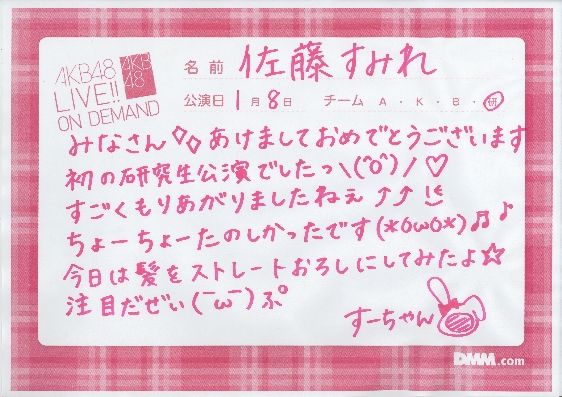 AKB48
LIVE!!
ON DEMAND
AKB
48
名前 佐藤すみれ
公演日 1月8日 チーム A・K・B・研
みなさん◇◇あけましておめでとうございます
初の研究生公演でしたっ\(^o^)/♡
すごくもりあがりましたねぇ⤴⤴
ちょーちょーたのしかったです(*òωó*)♬♪
今日は髪をストレートおろしにしてみたよ☆
注目だぜい(￣ω￣)ぷ
すーちゃん
DMM.com